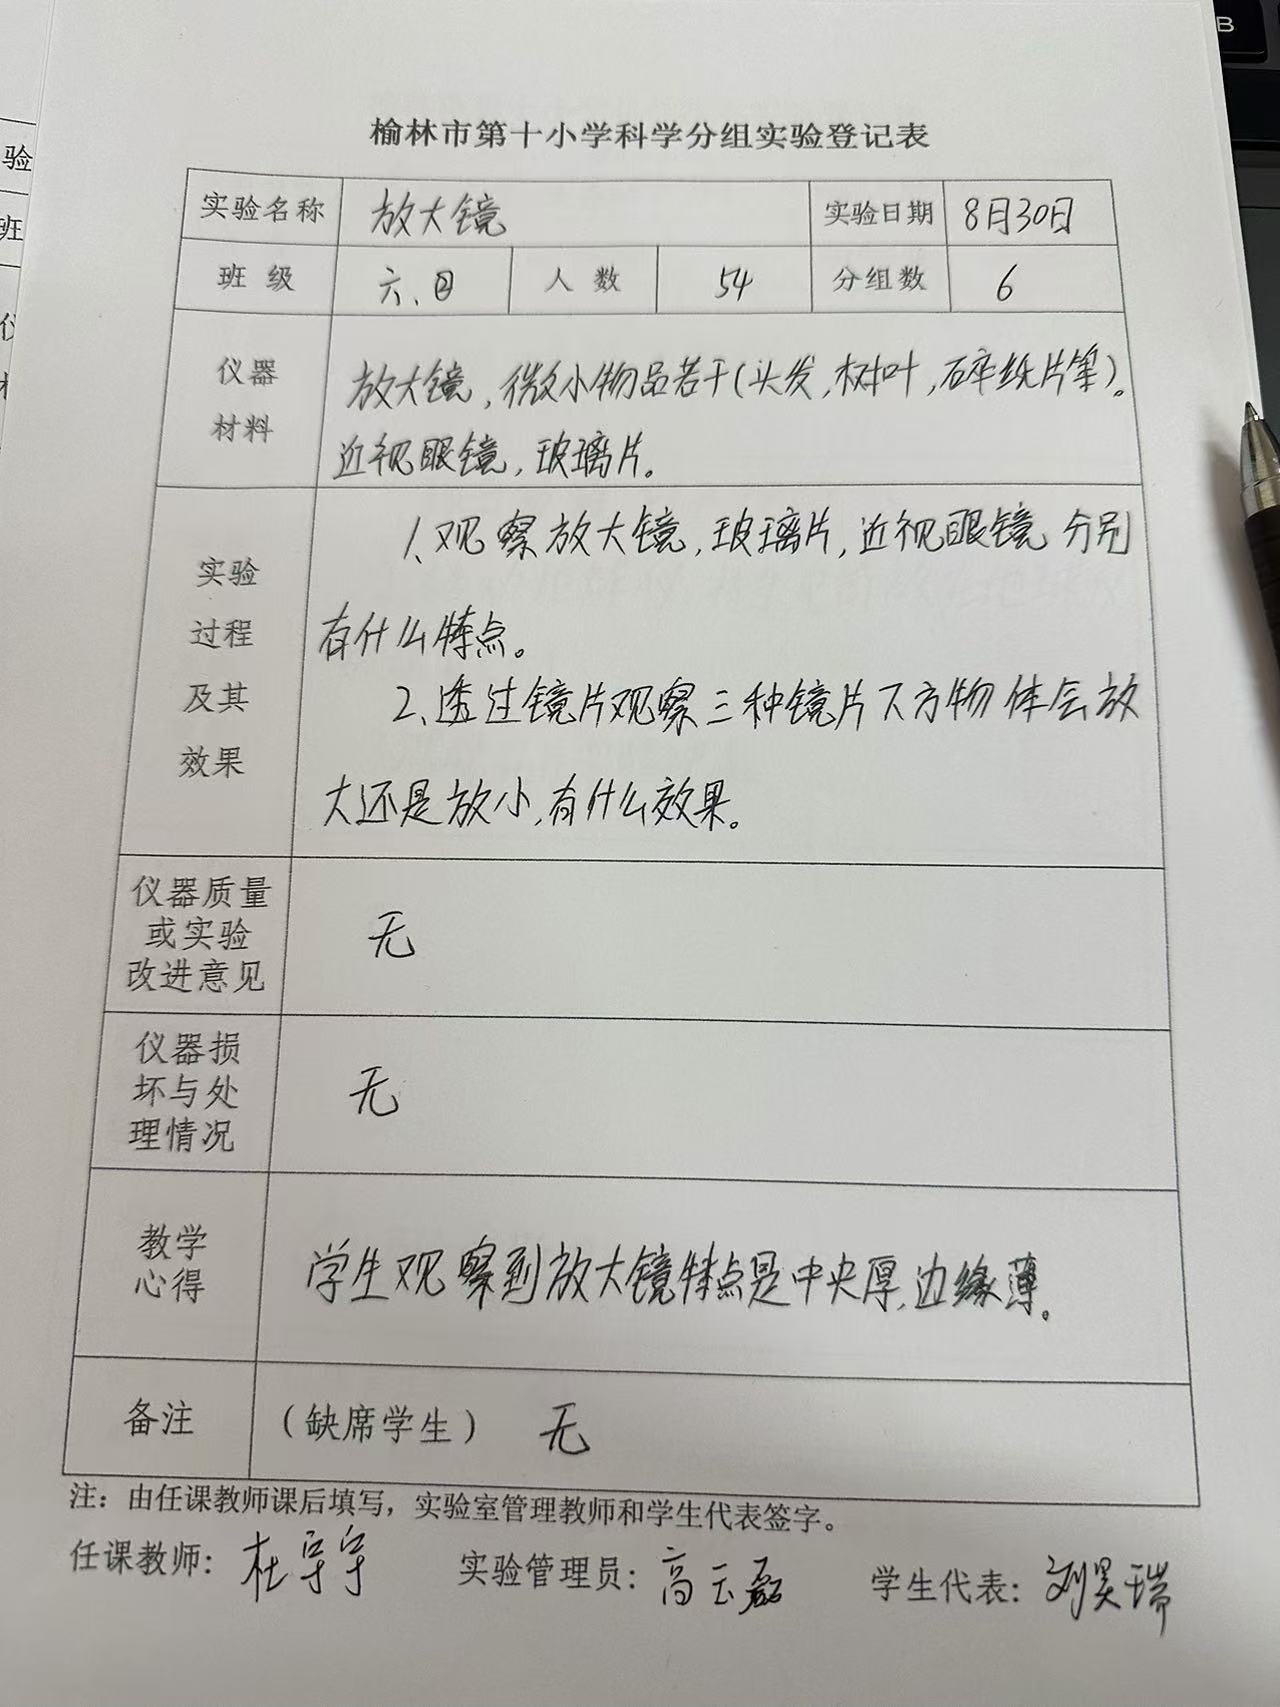 榆林市第十小学科学分组实验登记表
实验名称 放大镜 实验日期 8月30日
班 级 六、四 人 数 54 分组数 6
仪器
材料
放大镜，微小物品若干(头发，树叶，碎纸片等)。
近视眼镜，玻璃片。
实验
过程
及其
效果
1、观察放大镜，玻璃片，近视眼镜分别
有什么特点。
2、透过镜片观察三种镜片下方物体会放
大还是放小，有什么效果。
仪器质量
或实验
改进意见
无
仪器损
坏与处
理情况
无
教学
心得
学生观察到放大镜特点是中央厚，边缘薄。
备注 （缺席学生） 无
注：由任课教师课后填写，实验室管理教师和学生代表签字。
任课教师：杜宇宇 实验管理员：高玉磊 学生代表：刘昊瑞
验
班
B